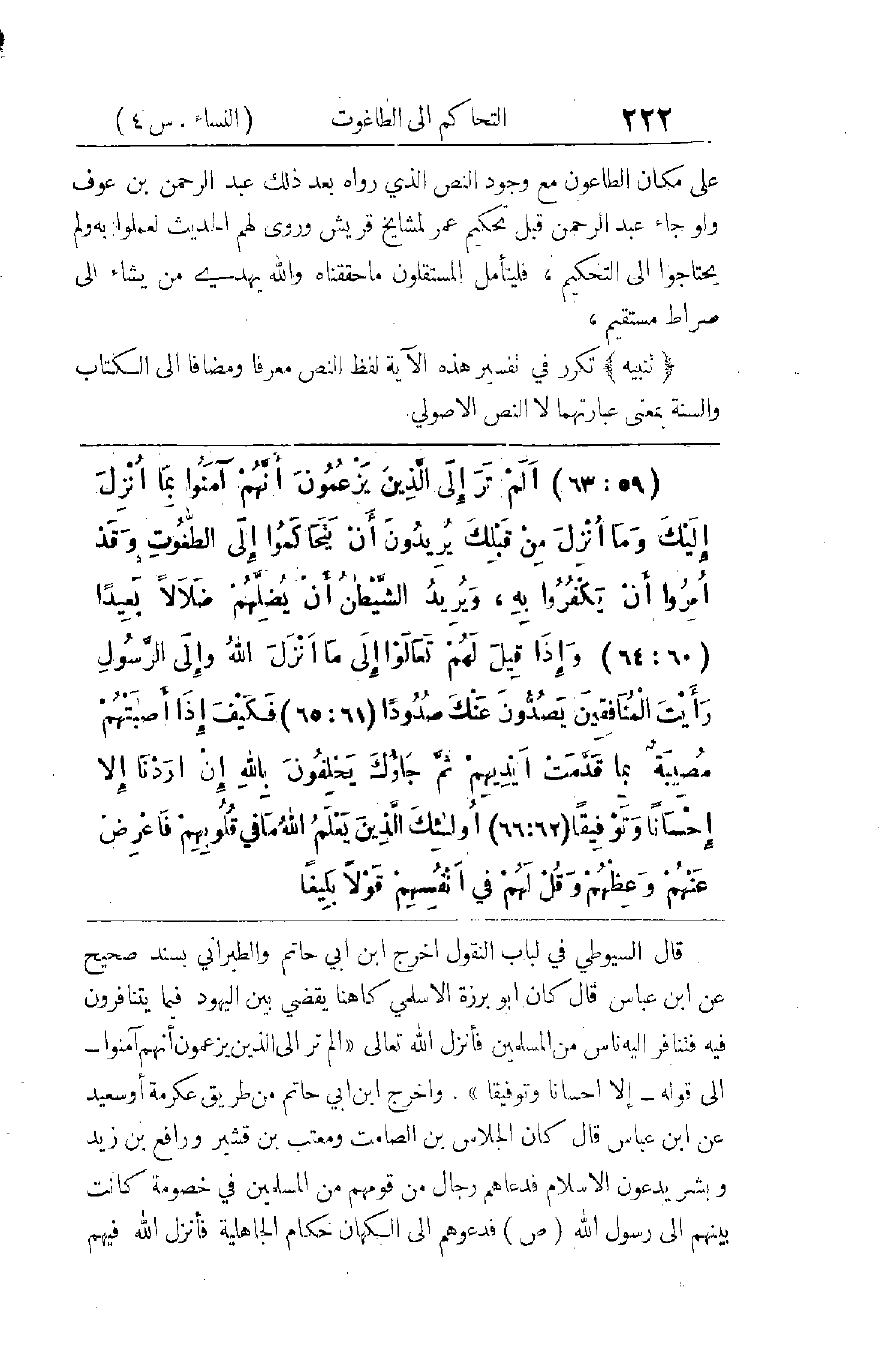 ٢٢٢ التحاكم الى الطاغوت (النساء . س ٤)
على مكان الطاعون مع وجود النص الذي رواه بعد ذلك عبد الرحمن بن عوف
ولو جاء عبد الرحمن قبل تحكيم عمر لمشايخ قريش وروى لهم الحديث لعملوا به ولم
يحتاجوا الى التحكيم ، فليتأمل المستقلون ماحققناه والله يهدي من يشاء الى
صراط مستقيم ،
﴿ تنبيه ﴾ تكرر في تفسير هذه الآية لفظ النص معرفا ومضافا الى الكتاب
والسنة بمعنى عبارتهما لا النص الاصولي.
(٦٣:٥٩) أَلَمْ تَرَ إِلَى الَّذِينَ يَزْعُمُونَ أَنَّهُمْ آمَنُوا بِمَا أُنْزِلَ
إِلَيْكَ وَمَا أُنْزِلَ مِنْ قَبْلِكَ يُرِيدُونَ أَنْ يَتَحَاكَمُوا إِلَى الطّٰغُوتِ وَقَدْ
أُمِرُوا أَنْ يَكْفُرُوا بِهِ ، وَيُرِيدُ الشَّيْطٰنُ أَنْ يُضِلَّهُمْ ضَلَالاً بَعِيدًا
(٦٤:٦٠) وَإِذَا قِيلَ لَهُمْ تَعَالَوْا إِلَى مَا أَنْزَلَ اللهُ وَإِلَى الرَّسُولِ
رَأَيْتَ الْمُنَافِقِينَ يَصُدُّونَ عَنْكَ صُدُودًا (٦٥:٦١) فَكَيْفَ إِذَا أَصٰبَتْهُمْ
مُصِيبَةٌ بِمَا قَدَّمَتْ أَيْدِيهِمْ ثُمَّ جَاؤُكَ يَحْلِفُونَ بِاللهِ إِنْ أَرَدْنَا إِلا
إِحْسَانًا وَتَوْفِيقًا (٦٦:٦٢) أُولٰئِكَ الَّذِينَ يَعْلَمُ اللهُ مَا فِي قُلُوبِهِمْ فَأَعْرِضْ
عَنْهُمْ وَعِظْهُمْ وَقُلْ لَهُمْ فِي أَنْفُسِهِمْ قَوْلاً بَلِيغًا
قال السيوطي في لباب النقول اخرج ابن ابي حاتم والطبراني بسند صحيح
عن ابن عباس قال كان ابو برزة الاسلمي كاهنا يقضي بين اليهود فيما يتنافرون
فيه فتنافر اليه ناس من المسلمين فأنزل الله تعالى «الم تر الى الذين يزعمون أنهم آمنوا –
الى قوله – إلا احسانا وتوفيقا » . واخرج ابن ابي حاتم من طريق عكرمة أو سعيد
عن ابن عباس قال كان الجلاس بن الصامت ومعتب بن قشير ورافع بن زيد
وبشر يدعون الاسلام فدعاهم رجال من قومهم من المسلمين في خصومة كانت
بينهم الى رسول الله ( ص ) فدعوهم الى الكهان حكام الجاهلية فأنزل الله فيهم